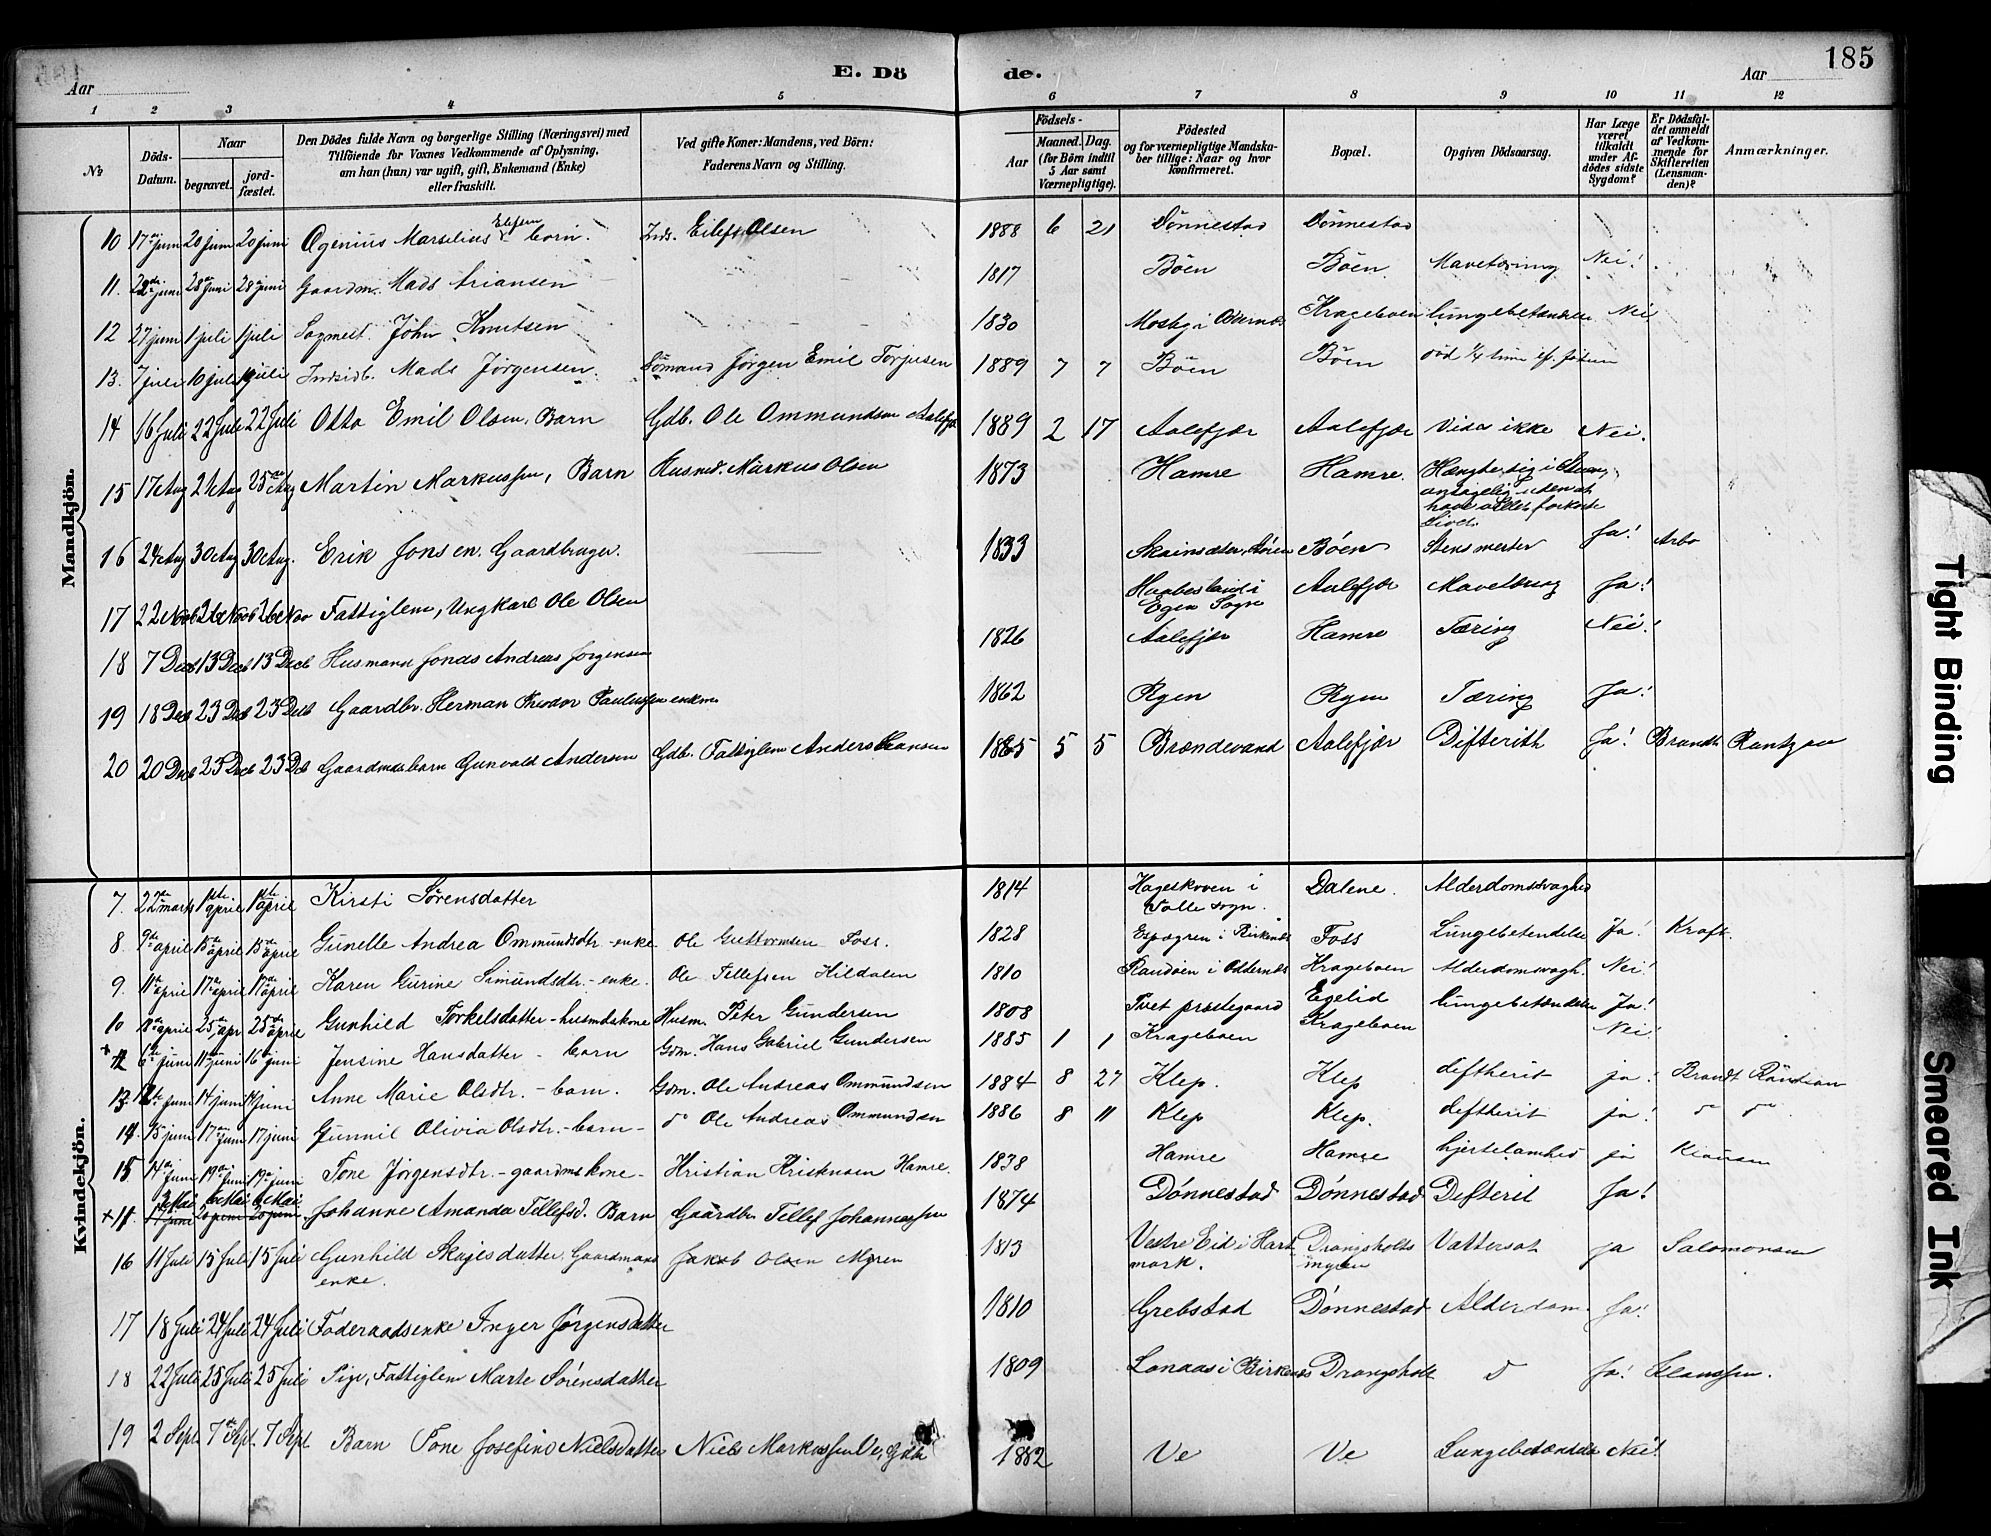 185
E. Dö
de.
Aar
Aar
1 2 3 4 5 6 7 8 9 10 11 12
No
Döds-Datum.
Naar
begravet.
jord-fæstet.
Den Dödes fulde Navn og borgerlige Stilling (Næringsvei) med
Tilföiende for Voxnes Vedkommende af Oplysning,
om han (hun) var ugift, gift, Enkemand (Enke)
eller fraskilt.
Ved gifte Koner: Mandens, ved Börn:
Faderens Navn og Stilling.
Födsels-
Aar
Maaned. Dag.
(for Börn indtil
5 Aar samt
Værnepligtige).
Födested
og for værnepligtige Mandska-
ber tillige: Naar og hvor
konfirmeret.
Bopæl.
Opgiven Dödsaarsag.
Har Læge
været
tilkaldt
under Af-
dödes sidste
Sygdom?
Er Dödsfal-
det anmeldt
af Vedkom-
mende for
Skifteretten
(Lensman-
den)?
Anmærkninger.
Mandkjön.
10 17de juni 20 juni 20 juni Ogenius Marselius Elefsen - barn. Inds. Eilef Olsen 1888 6 21 Dønnestad Dønnestad
11. 22de juni 28de juni 28 juni Gaardm. Mads Ariansen 1817 Bøen Bøen. Mavetæring Nei!
12 27 juni 1 juli 1 juli Sagmest. John Knutsen 1830 Mosby i Oddernes Krageboen lungebetændelse Nei
13. 7 juli 10 juli 10 juli Indsidb. Mads Jørgensen Sømand Jørgen Emil Torjusen 1889 7 7 Bøen Bøen død 1/4 time ef. føds
14 16 Juli 22 Juli 22 Juli Otto Emil Olsen, Barn Gdb. Ole Ommundsen Aalefjær 1889 2 17 Aalefjær Aalefjær Vides ikke Nei.
15 17 Aug 24 Aug 25 Aug Martin Markussen, Barn Husmd. Markus Olsen 1873 Hamre Hamre. Hængte sig i
antagelig uden at
have villet forkorte
Livet.
16 24 Aug 30 Aug 30 Aug. Erik Jonsen. Gaardbruger. 1833 Bøen Stensmerter Ja! Arbo
17 22 Nov 26 Nov 26 Nov Fattiglem, Ungkarl Ole Olsen Haabesland i
Ogen Sogn Aalefjær Mavetæring Ja!
18 7 Decb 13 Decb 13 Decb Husmand Jonas Andreas Jørgensen 1826 Aalefjær Hamre Tæring Nei!
19 18 Dec 23 Dec 23 Decb Gaardbr. Herman Theodor Paulussen enkm 1862 Rygen Rygen Tæring Ja!
20 20 Decb 23 Decb 23 Dcb Gaardmdsbarn Gunvald Andersen Gdb. Fattiglem Anders Hansen 1885 5 5 Brændevand Aalefjær Difterith Ja! Brandt Rantzau
Kvindekjön.
7. 22de marts 1ste april 1ste april Kirsti Sørensdatter 1814 Hageskoven i
Valle sogn. Dalene. Alderdomssvaghed
8. 9de april 15de april 15de april Gunelle Andrea Ommundsdtr. - enke Ole Guttormsen Foss. 1828 Espegren i Birkenes Foss Lungebetendelse Ja! Kraft.
9. 11de april 17de april 17de april Karen Gurine Simundsdtr. - enke. Ole Tellefsen Kildalen 1810 Randøen i Oddernes Krageboen Alderdomsvagh. Nei!
10 18de april 25de apr 25de april Gunhild Torkelsdatter - husmdskone Husm. Peter Gundersen 1808 Tvet præstegaard Egelid lungebetændelse Ja!
+ 12 6te juni 11te juni 16 juni Jensine Hansdatter - barn Gdm. Hans Gabriel Gundersen 1885 1 1 Krageboen Krageboen Nei!
13. 12te juni 14 juni 14 juni Anne Marie Olsdtr. - barn. Gdm. Ole Andreas Ommundsen 1884 8 27 Klep. Klep deftherit ja! Brandt
14. 15 juni 17de juni 17 juni Gunnil Olivia Olsdtr. - barn - do Ole Andreas Ommundsen 1886 8 11 Klep Klep. deftherit ja! do do
15 14de juni 19de juni 19de juni Tone Jørgensdtr. - gaardmskone - Kristian Kristensen Hamre. 1838 Hamre Hamre hjertelamhed ja Klausen
+ 11. 3 Mai 6 Mai 6 Mai Johanne Amanda Tellefsd. Barn Gaardbr Tellef Johannessen 1874 Dønnestad Dønnestad Defterit Ja!
16 11 Juli 15 Juli 15 Juli Gunhild Skajesdatter, Gaardmands
enke. Jakob Olsen Myren 1813 Vestre Eid i Hart
mark. Drangsholts
myren Vattersot ja Salomonsen
17 18 Juli 24 Juli 24 Juli Føderaadsenke Inger Jørgensdatter 1810 Grebstad Dønnestad Alderdom. Ja!
18 22 Juli 25 Juli 25 Juli Pige, Fattiglem Marte Sørensdatter 1809 Lonaas i Birkenes Drangsholt do Ja! Klaussen.
19 2 Sept 7de Sept. 7 Sept Barn Tone Josefine Nielsdatter Niels Markussen Ve, Gdb 1882 Ve Ve Lungebetændelse Nei!
Tight Binding
Smeared Ink